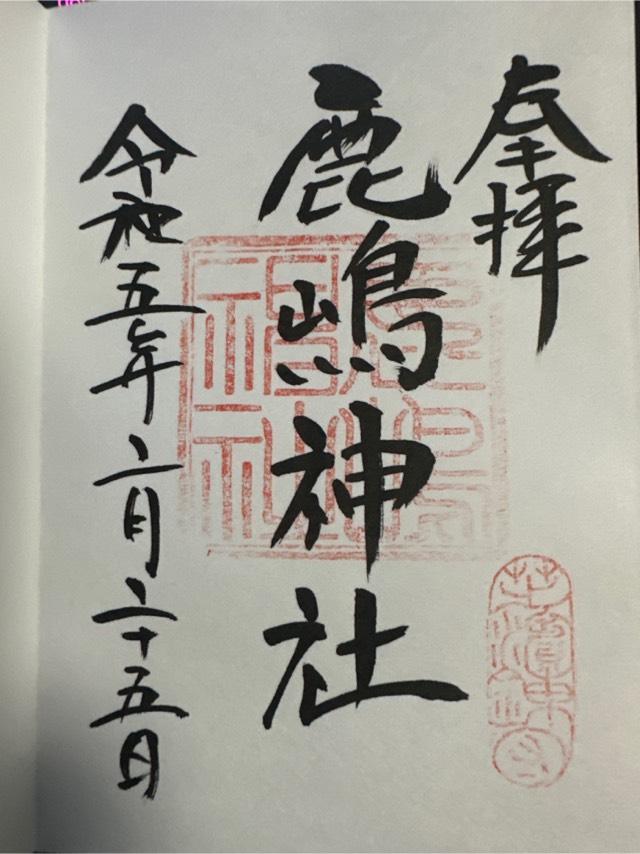 奉拝
鹿嶋神社
令和五年二月二十五日